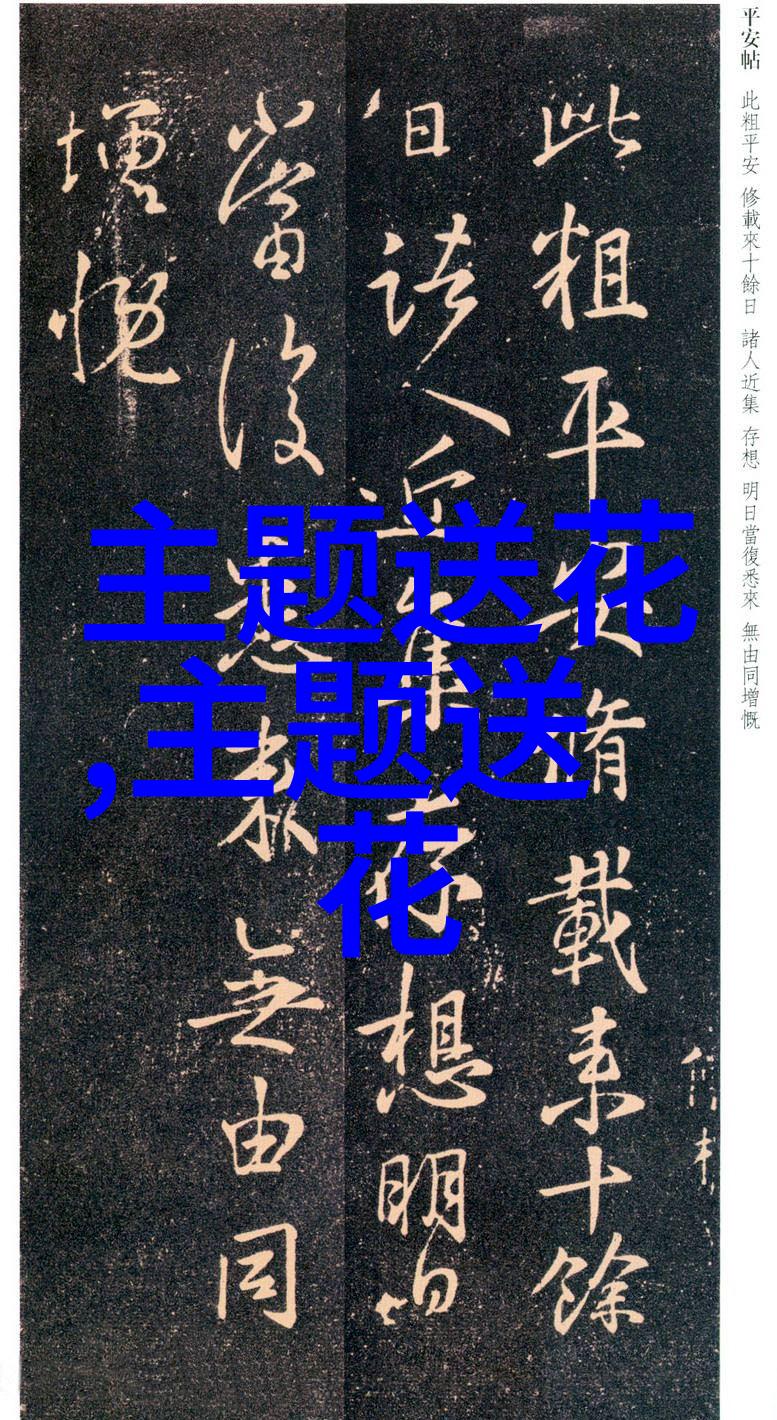 平安帖 此粗平安 修載來十餘日 諸人近集 存想 明日當復悉來 無由同增慨
此粗平安脩載来十餘
日諸人近集存想明日
當復悉来無由同
增慨
主题送花
,主题送
花